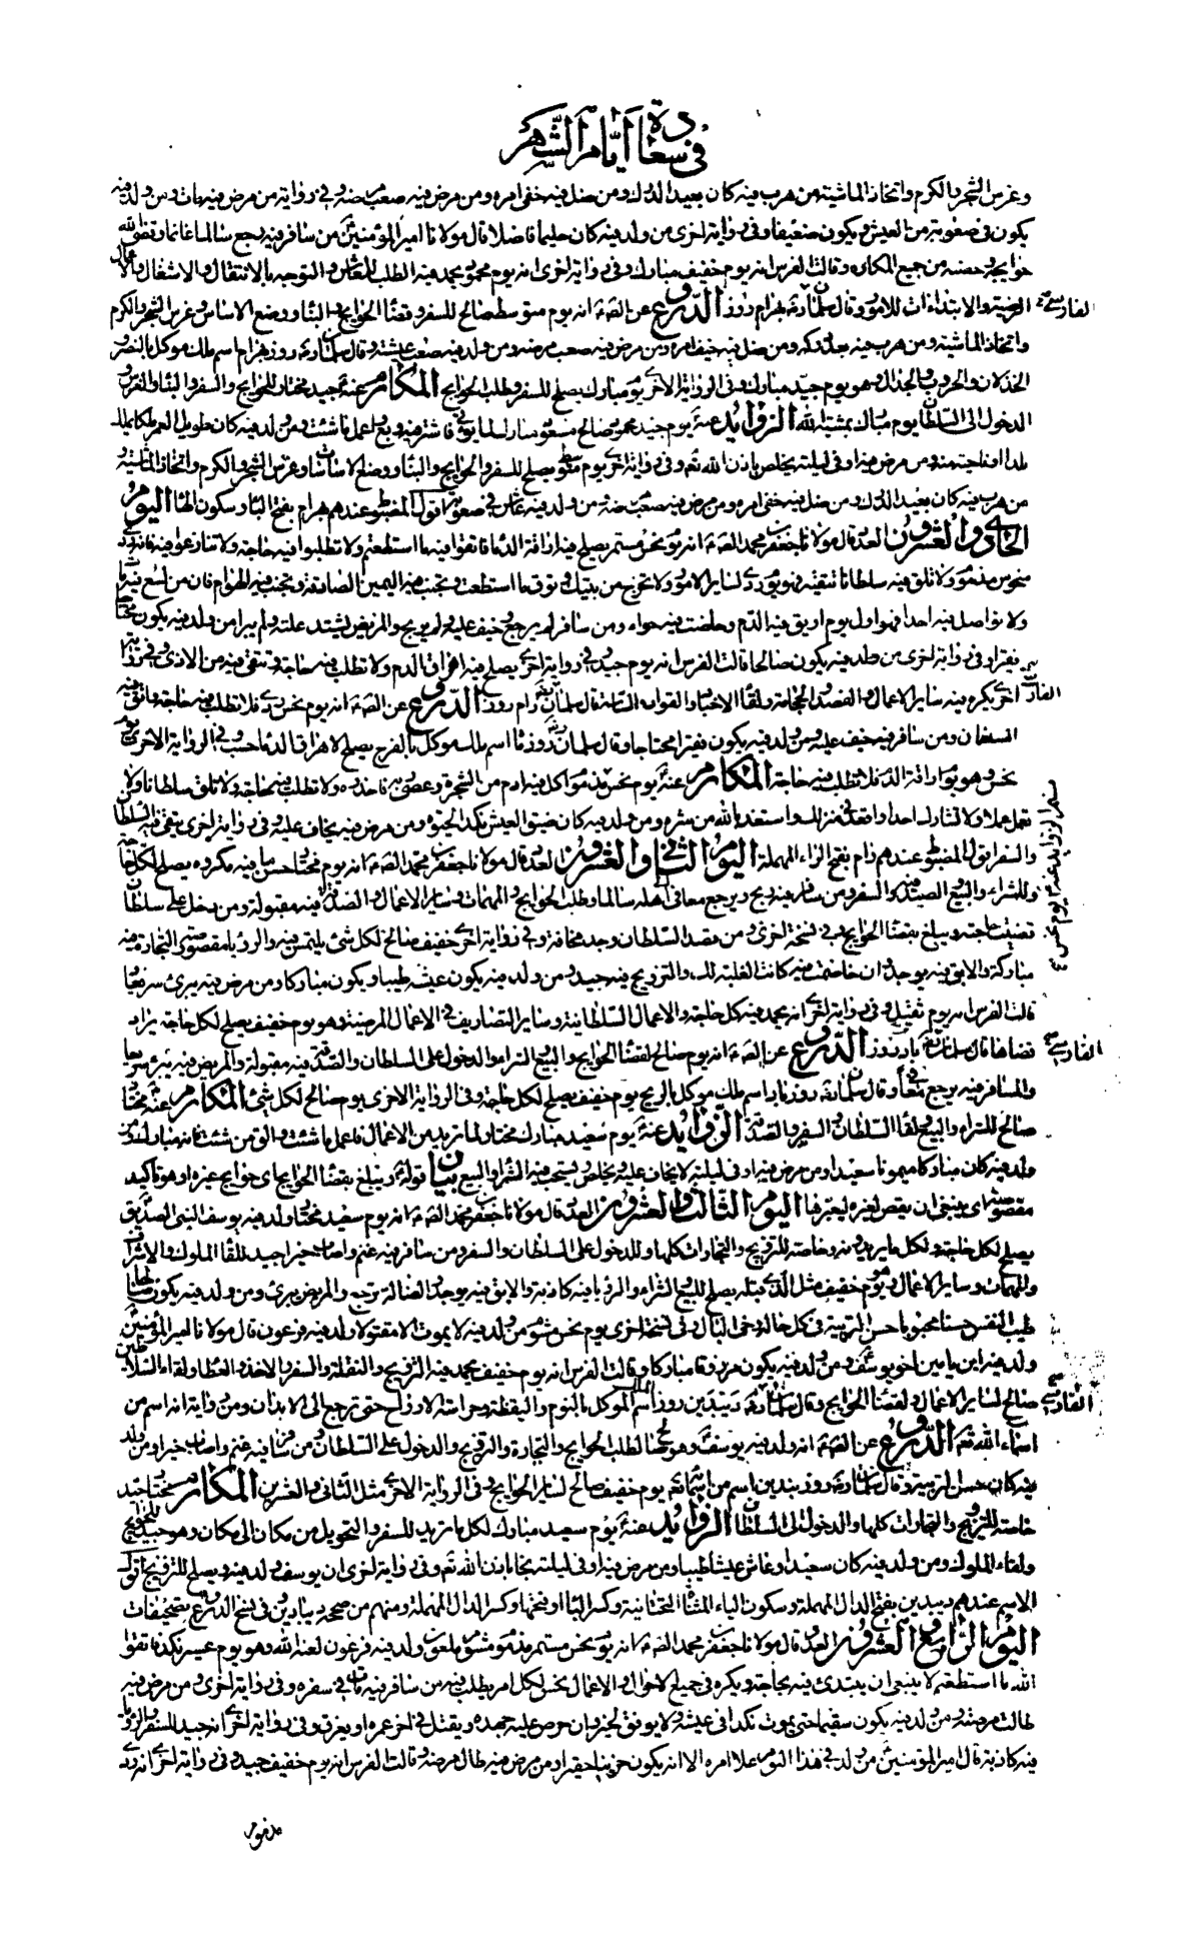 في سعادة أيام الشهر
وغرس الشجر والكرم واتخاذ الماشية ومن هرب فيه كان بعيد الدرك ومن ضل فيه خفى امره ومن مرض فيه صعب مرضه وفى رواية من مرض فيه مات ومن ولد فيه
يكون فى صعوبة من العيش ويكون ضعيفا وفى رواية اخرى من ولد فيه كان حليما فاضلا قال مولانا امير المؤمنين من سافر فيه رجع سالما غانما وقضى الله
حوايجه وحصنه من جميع المكاره وقالت الفرس انه يوم خفيف مبارك وفى رواية اخرى انه يوم محمود يحمد فيه الطلب للمعاش والتوجه بالانتقال والاشغال والاعمال
الرضية والابتداءات للامور وقال سلمان بهرام روز الدروع عن الص انه يوم متوسط صالح للسفر وقضاء الحوايج والبناء ووضع الاساس وغرس الشجر والكرم
واتخاذ الماشية ومن هرب فيه بعد دركه ومن ضل فيه خفى امره ومن مرض فيه صعب مرضه ومن ولد فيه صعب عيشه وقال سلمان روز بهرام اسم ملك موكل بالنصر و
الخذلان والحروب والجدال وهو يوم جيد مبارك وفى الرواية الاخرى يوم مبارك يصلح للسفر وطلب الحوايج المكارم عنه جيد مختار للحوايج والسفر والبناء والغرس و
الدخول الى السلطان يوم مبارك بمشية الله الزوائد عنه يوم جيد محمود صالح مسعود مبارك لما يؤتى فاشتر فيه وبع واعمل ما شئت ومن ولد فيه كان طويل العمر ملكا يملك
بلدا او ناحية منه ومن مرض فيه او فى ليلته يخلص باذن الله تعالى وفى رواية اخرى يوم متوسط يصلح للسفر والحوايج والبناء ووضع الاساسات وغرس الشجر والكرم واتخاذ الماشية و
من هرب فيه كان بعيد الدرك ومن ضل فيه خفى امره ومن مرض فيه صعب مرضه ومن ولد فيه عاش فى صعوبة اقول المضبوط عندهم بهرام بفتح الباء وسكون الهاء اليوم
الحادى والعشرون العدد قال مولانا جعفر بن محمد الص انه يوم نحس مستمر يصلح فيه اراقة الدماء فاتقوا فيه ما استطعتم ولا تطلبوا فيه حاجة ولا تنازعوا فيه فانه ردى
منحوس مذموم ولا تلق فيه سلطانا تتقيه فهو يوم ردى لساير الامور ولا تخرج من بيتك وتوق ما استطعت وتجنب فيه اليمين الصادقة وتجنب فيه الهوام فان من لسع فيه مات
ولا تواصل فيه احدا فهو اول يوم اريق فيه الدم وحاضت فيه حواء ومن سافر لم يرجع وخيف عليه ولم يربح والمريض تشتد علته ولم يبرا ومن ولد فيه يكون محتاجا
فقيرا وفى رواية اخرى من ولد فيه يكون صالحا قالت الفرس انه يوم جيد وفى رواية اخرى يصلح فيه اهراق الدم ولا تطلب فيه حاجة وتتقى فيه من الاذى وفى رواية
الفارسية اخرى يكره فيه ساير الاعمال والفصد والحجامة ولقاء الاجناد والقواد والساسة قال سلمان رام روز الدروع عن الص انه يوم نحس ردى فلا تطلب فيه حاجة واتق فيه
السلطان ومن سافر فيه خيف عليه ومن ولد فيه يكون فقيرا محتاجا وقال سلمان روز ماه اسم ملك موكل بالفرح يصلح لاهراق الدماء حسب وفى الرواية الاخرى يوم
نحس وهو يوم اراقة الدم فلا تطلب فيه حاجة المكارم عنه يوم نحس مذموم اكل فيه ادم من الشجرة وعصى ربه فاحذره ولا تطلب فيه حاجة ولا تلق سلطانا ولا
تعمل عملا ولا تشارك احدا واقعد فى منزلك واستعذ بالله من شره ومن ولد فيه كان ضيق العيش نكد الحيوة ومن مرض فيه يخاف عليه وفى رواية اخرى يتقى فيه السلطان
والسفر اقول المضبوط عندهم رام بفتح الراء المهملة اليوم الثانى والعشرون العدد قال مولانا جعفر بن محمد الص انه يوم مختار حسن ما فيه مكروه يصلح لكل حاجة
وللشراء والبيع والصيد فيه والسفر ومن سافر فيه ربح ويرجع معافى الى اهله سالما وطلب الحوايج والمهمات وساير الاعمال والصدقة فيه مقبولة ومن دخل على سلطان
قضيت حاجته ويبلغ بقضاء الحوايج وفى نسخة اخرى ومن قصد السلطان وجد مخافة وفى رواية اخرى خفيف صالح لكل شئ يلتمس فيه والرؤيا مقصوصة والتجارة فيه
مباركة والابق فيه يوجد وان خاصمت فيه كانت الغلبة لك والتزويج فيه جيد ومن ولد فيه يكون عيشه طيبا ويكون مباركا ومن مرض فيه يبرئ سريعا
قالت الفرس انه يوم ثقيل وفى رواية اخرى انه يحمد فيه كل حاجة والاعمال السلطانية وساير التصاريف فى الاعمال المرضية وهو يوم خفيف يصلح لكل حاجة يراد
الفارسية قضاءها قال سلمان باد روز الدروع عن الص انه يوم صالح لقضاء الحوايج والبيع والشراء والدخول على السلطان والصدقة فيه مقبولة والمريض فيه يبرئ سريعا
والمسافر فيه يرجع معافا وقال سلمان روز باد اسم ملك موكل بالريح يوم خفيف يصلح لكل حاجة وفى الرواية الاخرى يوم صالح لكل شئ المكارم عنه مختار
صالح للشراء والبيع ولقاء السلطان والسفر والصدقة الزوائد عنه يوم سعيد مبارك مختار لما تريد من الاعمال فاعمل ما شئت والق من شئت فانه مبارك ومن
ولد فيه كان مباركا ميمونا سعيدا ومن مرض فيه او فى ليلته لا يخاف عليه ويخلص ويستحب فيه الشراء والبيع بيان قوله ويبلغ بقضاء الحوايج اى حوايج غيره او هو تاكيد
مقصوصة اى ينبغى ان يقص لغيره ليعبرها اليوم الثالث والعشرون العدد قال مولانا جعفر بن محمد الص انه يوم سعيد مختار ولد فيه يوسف النبى الصديق
يصلح لكل حاجة ولكل ما يريدونه وخاصة للتزويج والتجارات كلها وللدخول على السلطان والسفر ومن سافر فيه غنم واصاب خيرا جيد للقاء الملوك والاشراف
والمهمات وساير الاعمال وهو يوم خفيف مثل الذى قبله يصلح للبيع والشراء والرؤيا فيه كاذبة والابق فيه يوجد والضالة ترجع والمريض يبرئ ومن ولد فيه يكون صالحا
طيب النفس حسنا محبوبا حسن التربية فى كل حاله رخى البال وفى نسخة اخرى يوم نحس مشوم من ولد فيه لا يموت الا مقتولا ولد فيه فرعون قال مولانا امير المؤمنين
ولد فيه ابن يامين اخو يوسف ومن ولد فيه يكون مرزوقا مباركا وقالت الفرس انه يوم خفيف يحمد فيه التزويج والنقلة والسفر والاخذ والعطا ولقاء السلاطين
الفارسية صالح لساير الاعمال ولقضاء الحوايج وقال سلمان ديبدين روز اسم الملك الموكل بالنوم واليقظة وحراسة الارواح حتى ترجع الى الابدان ومن رواية انه اسم من
اسماء الله تعالى الدروع عن الص انه ولد فيه يوسف وهو صالح لطلب الحوايج والتجارة والتزويج والدخول على السلطان ومن سافر فيه غنم واصاب خيرا ومن ولد
فيه كان حسن التربية وقال سلمان روز ديبدين اسم من اسمائه تعالى يوم خفيف صالح لساير الحوايج وفى الرواية الاخرى مثل الثانى والعشرين المكارم مختار جيد
خاصة للتزويج والتجارات كلها والدخول الى السلطان الزوائد عنه يوم سعيد مبارك لكل ما تريد للسفر والتحويل من مكان الى مكان وهو جيد للحوايج
ولقاء الملوك ومن ولد فيه كان سعيدا وعاش عيشا طيبا ومن مرض فيه او فى ليلته نجا باذن الله تعالى وفى رواية اخرى ان يوسف ولد فيه ويصلح للتزويج اقول
الاسم عندهم ديبدين بفتح الدال المهملة وسكون الياء المثناة التحتانية وكسر الباء او فتحها وكسر الدال المهملة ومنهم من صححه ديبادين وفى نسخ الدروع تصحيفات
اليوم الرابع والعشرون العدد قال مولانا جعفر بن محمد الص انه يوم نحس مستمر مذموم مشوم ملعون ولد فيه فرعون لعنه الله وهو يوم عسير نكد فاتقوا
الله ما استطعتم لا ينبغى ان يبتدئ فيه بحاجة ويكره فى جميع الاحوال والاعمال نحس لكل امر يطلب فيه من سافر فيه مات فى سفره وفى رواية اخرى ومن مرض فيه
طالت مرضته ومن ولد فيه يكون سقيما حتى يموت نكدا فى عيشه ولا يوفق لخير وان حرص عليه جهده ويقتل فى اخر عمره او يغرق وفى رواية اخرى انه جيد للسفر والرؤيا
فيه كاذبة قال امير المؤمنين من ولد فى هذا اليوم علا امره الا انه يكون حزينا حقيرا ومن مرض فيه طال مرضه وقالت الفرس انه يوم خفيف جيد وفى رواية اخرى انه ردى
مذموم